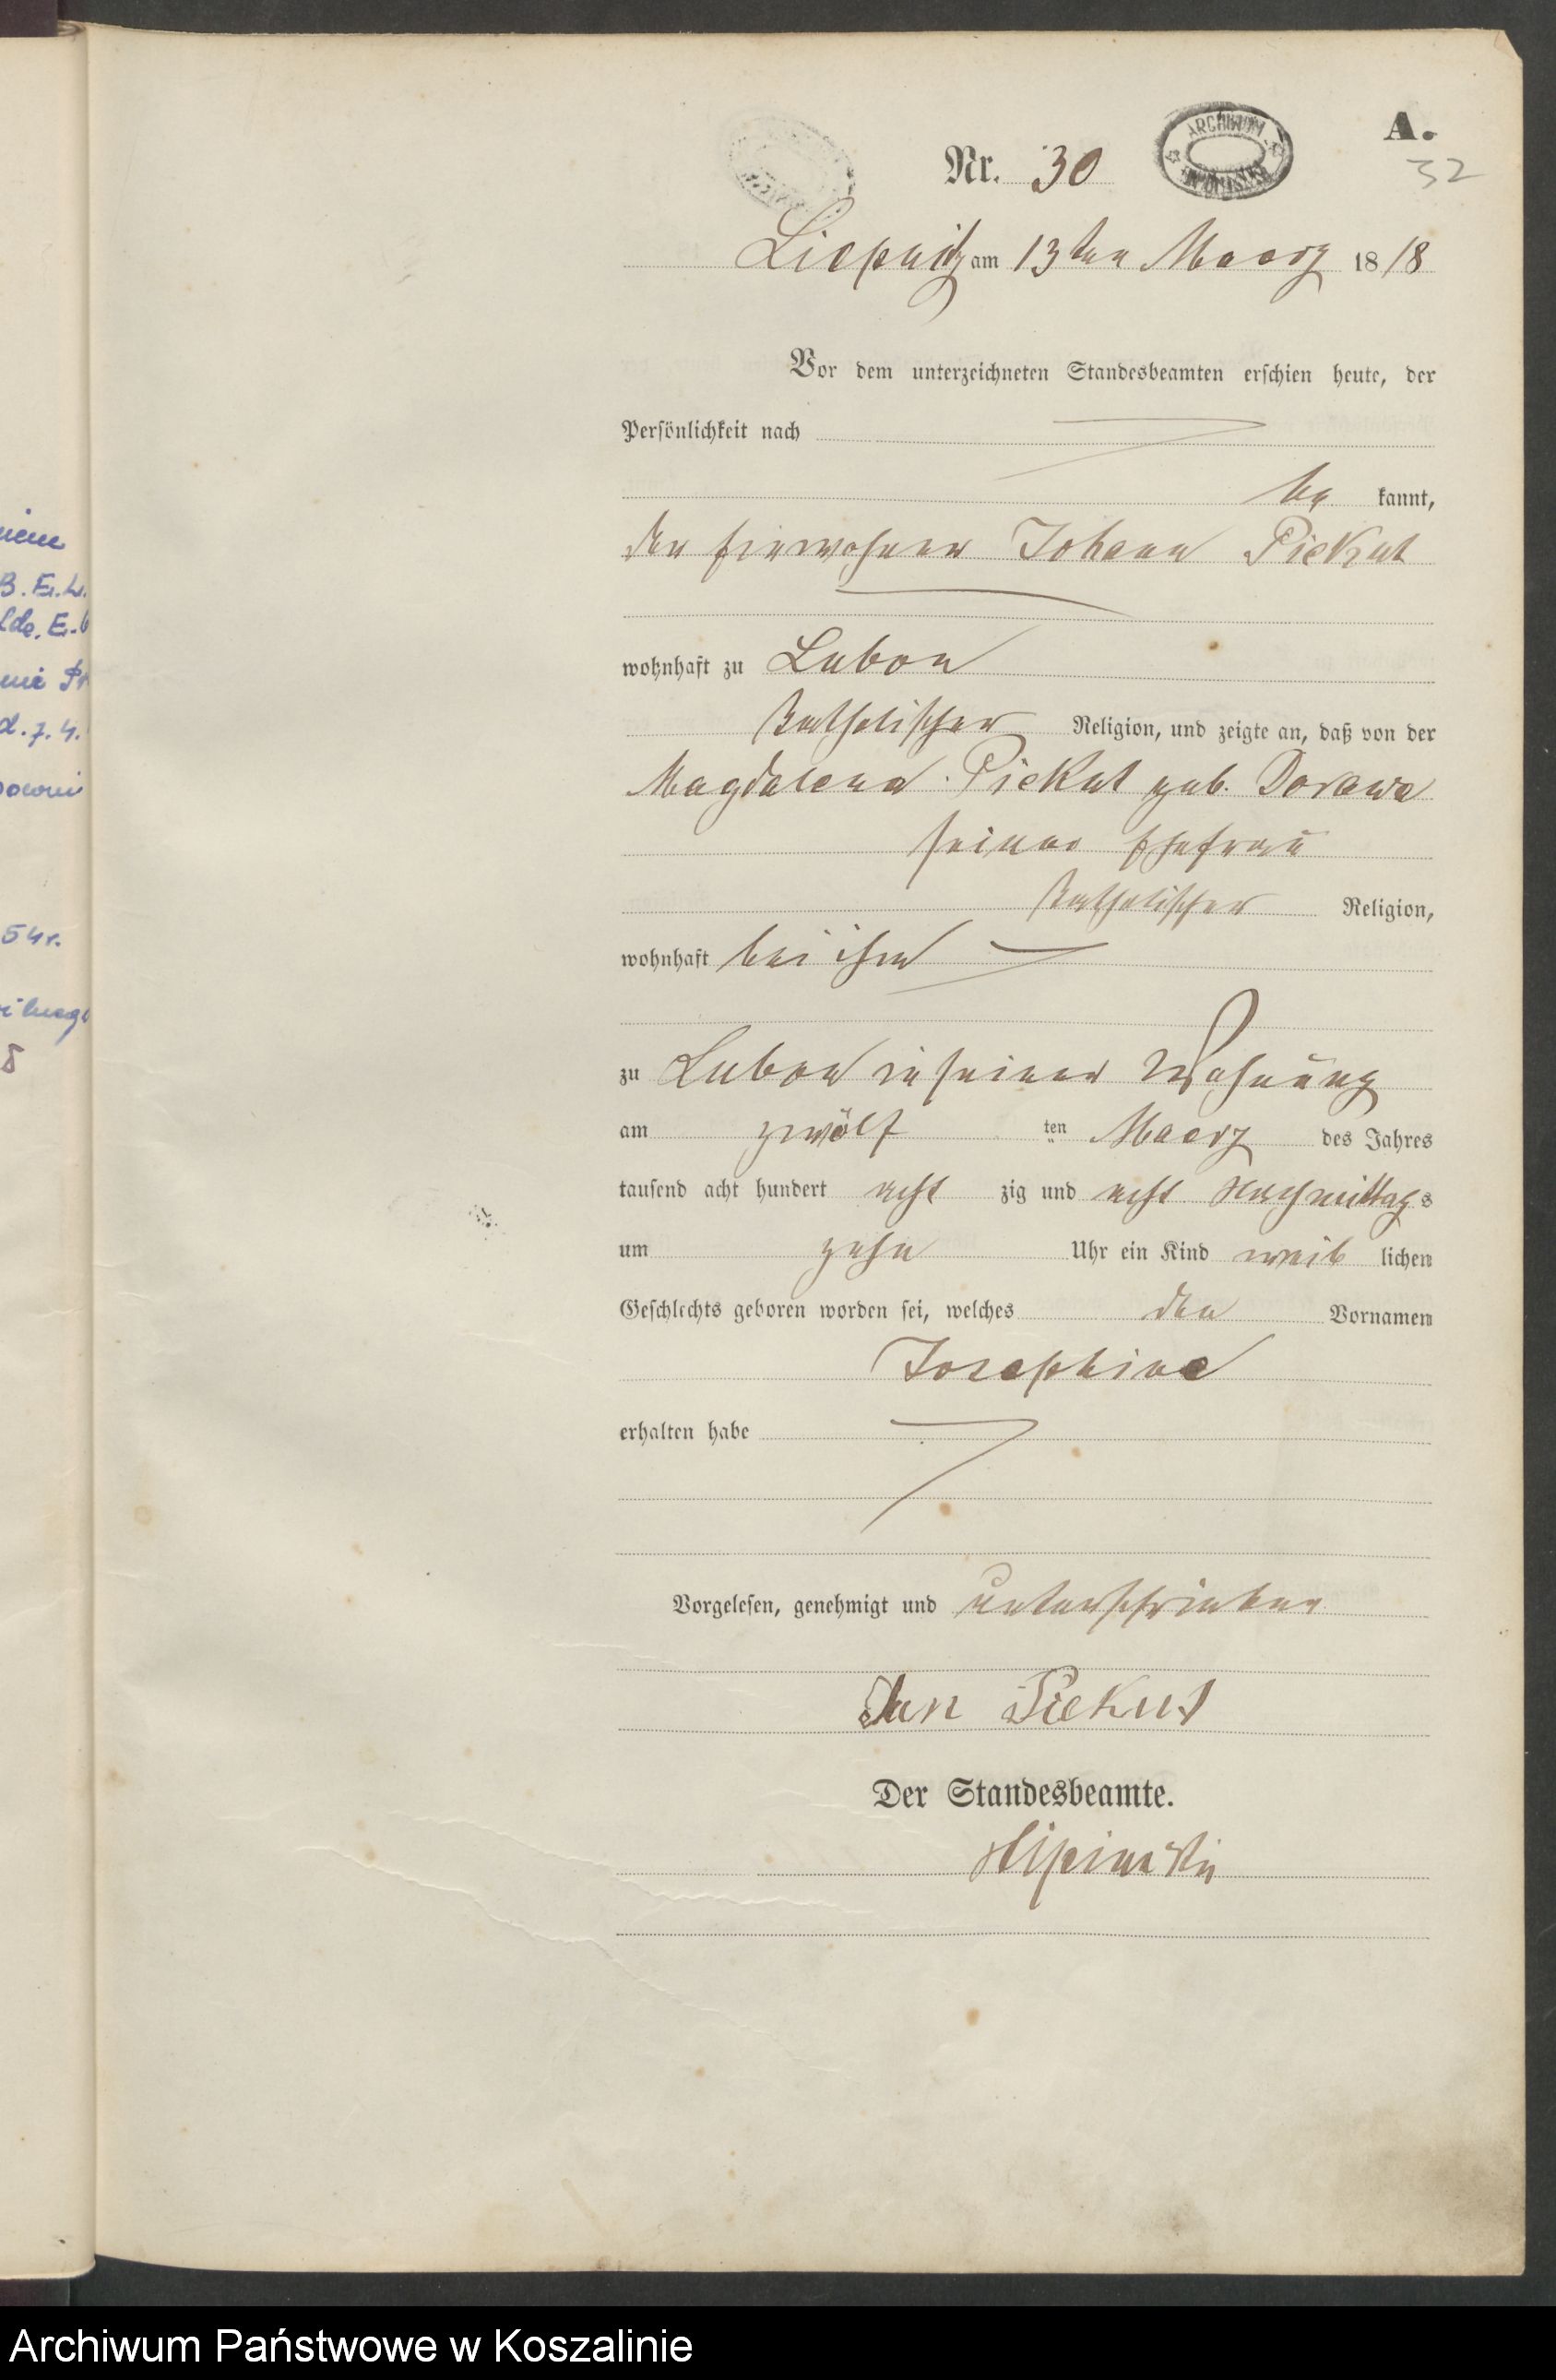 A.
Nr. 30
ARCHIWUM
32
Liepnitz am 13ten Maerz 1888
Vor dem unterzeichneten Standesbeamten erschien heute, der
Persönlichkeit nach
be kannt,
der Einwohner Johann Piekut
wohnhaft zu Lubon
katholischer Religion, und zeigte an, daß von der
Magdalena Piekut geb. Dorawa
seiner Ehefrau
katholischer Religion,
wohnhaft bei ihm
zu Lubon in seiner Wohnung
am zwölf ten Maerz des Jahres
tausend acht hundert acht zig und acht Nachmittags
um zehn Uhr ein Kind weib lichen
Geschlechts geboren worden sei, welches den Vornamen
Josephine
erhalten habe
Vorgelesen, genehmigt und unterschrieben
Jan Piekut
Der Standesbeamte.
B. E. L.
54r.
Archiwum Państwowe w Koszalinie